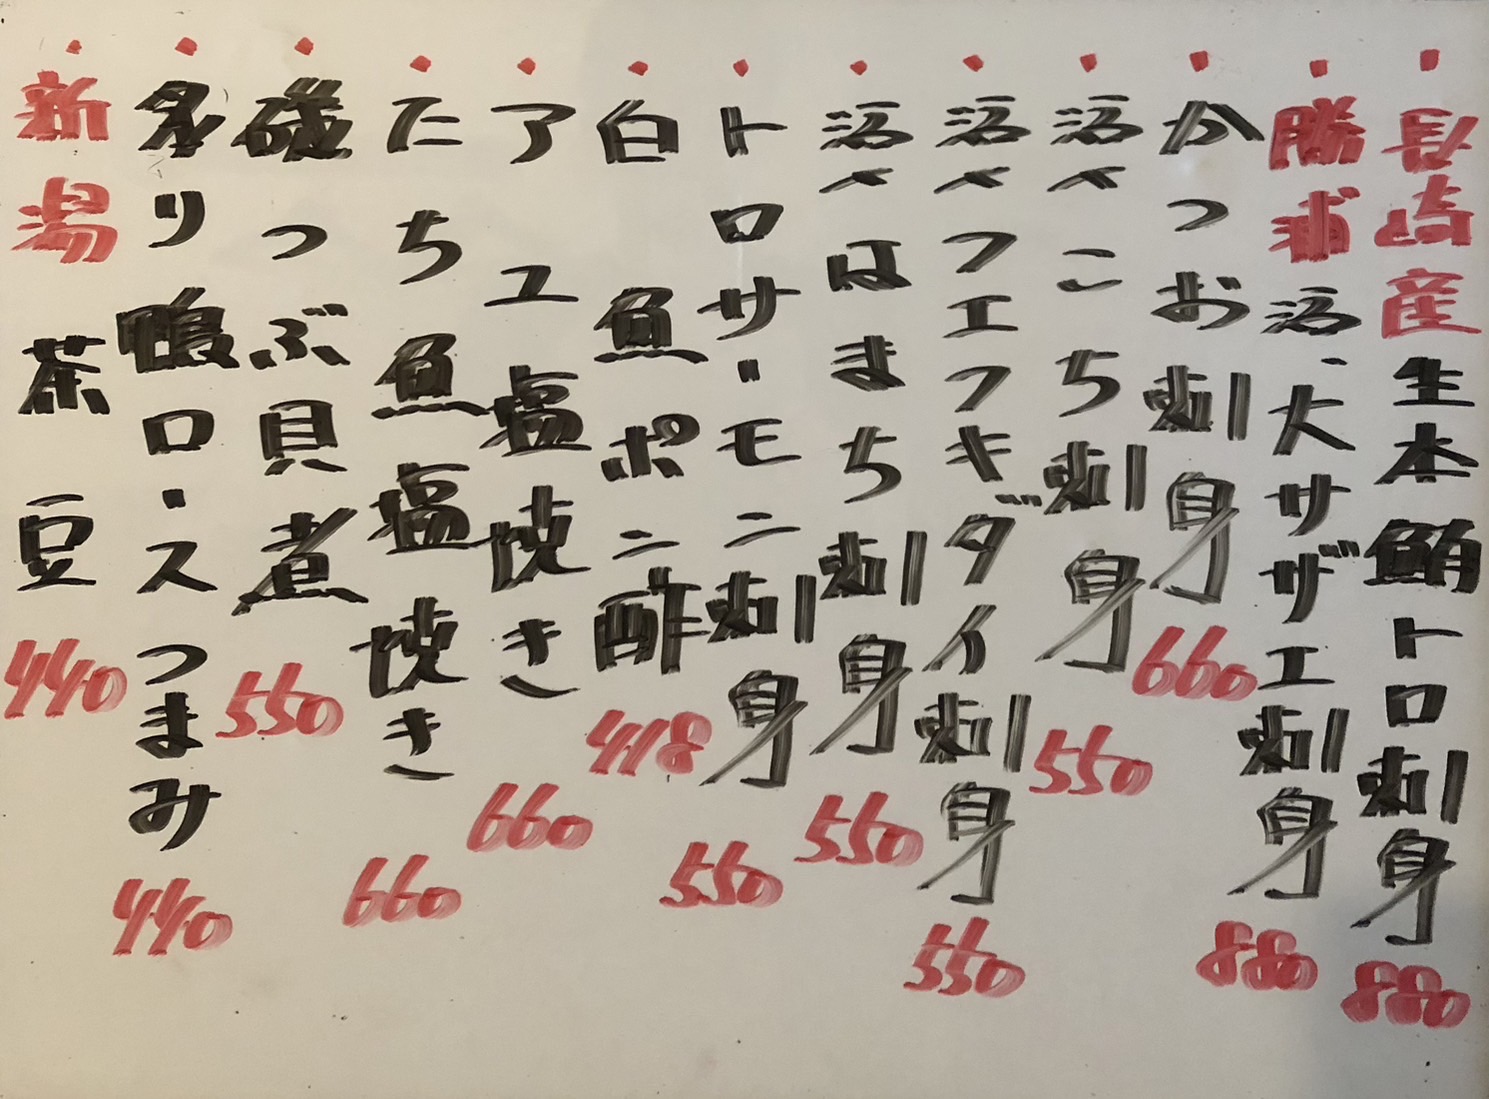 ・長崎産生本鮪トロ刺身 880
・勝浦活、大サザエ刺身 880
・かつお刺身 660
・活〆こち刺身 550
・活〆フエフキダイ刺身 550
・活〆はまち刺身 550
・トロサーモン刺身 550
・白魚ポン酢 418
・アユ塩焼き 660
・たち魚塩焼き 660
・磯つぶ貝煮 550
・炙り鴨ロースつまみ 440
・新潟茶豆 440